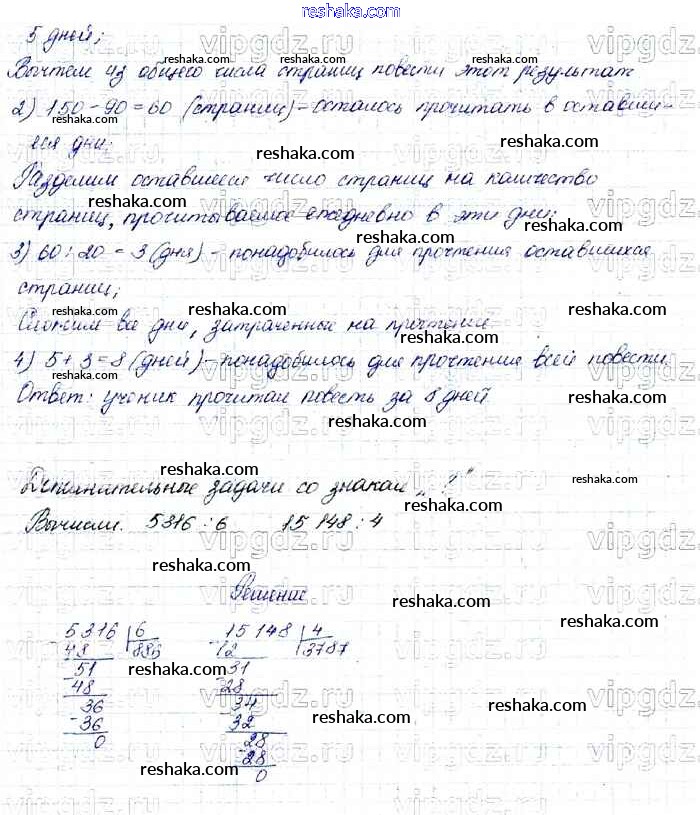 reshaka.com
5 дней;
Вычтем из общего числа страниц повести этот результат
2) 150 - 90 = 60 (страниц) - осталось прочитать в оставши-
еся дни;
Разделим оставшееся число страниц на количество
страниц, прочитываемое ежедневно в эти дни:
3) 60 : 20 = 3 (дня) - понадобилось для прочтения оставшихся
страниц;
Сложим все дни, затраченные на прочтение
4) 5 + 3 = 8 (дней) - понадобилось для прочтения всей повести
Ответ: ученик прочитал повесть за 8 дней
Дополнительные задачи со знаком „?"
Вычисли. 5316 : 6 15 148 : 4
Решение
5316 6 15148 4
48 886 12 3787
51 31
48 28
36 34
36 32
0 28
28
0